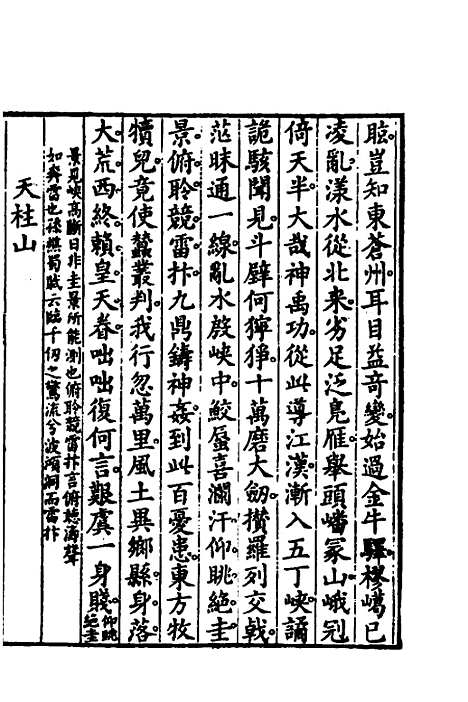 臨豈知東蒼州耳目益竒變始過金牛驛樛嶱已
凌亂漾水從北來劣足泛鳧雁舉頭嶓冢山峨冠
倚天半大哉神禹功從此導江漢漸入五丁峽譎
詭駭聞見斗壁何獰猙十萬磨大劒攢羅列交戟
茫昧通一線亂水殷峽中鮫蜃喜瀾汗仰眺絕圭
景俯聆競雷抃九鼎鑄神姦到此百憂患東方牧
犢兒竟使蠶叢判我行忽萬里風土異鄉縣身落
大荒西終賴皇天眷咄咄復何言艱虞一身賤仰眺絕圭
景見峽高斷日非圭景所能測也俯聆競雷抃言俯聽濤聲
如奔雷也 蜀賦云臨千仞之驚流兮波澒洞而雷抃
天柱山